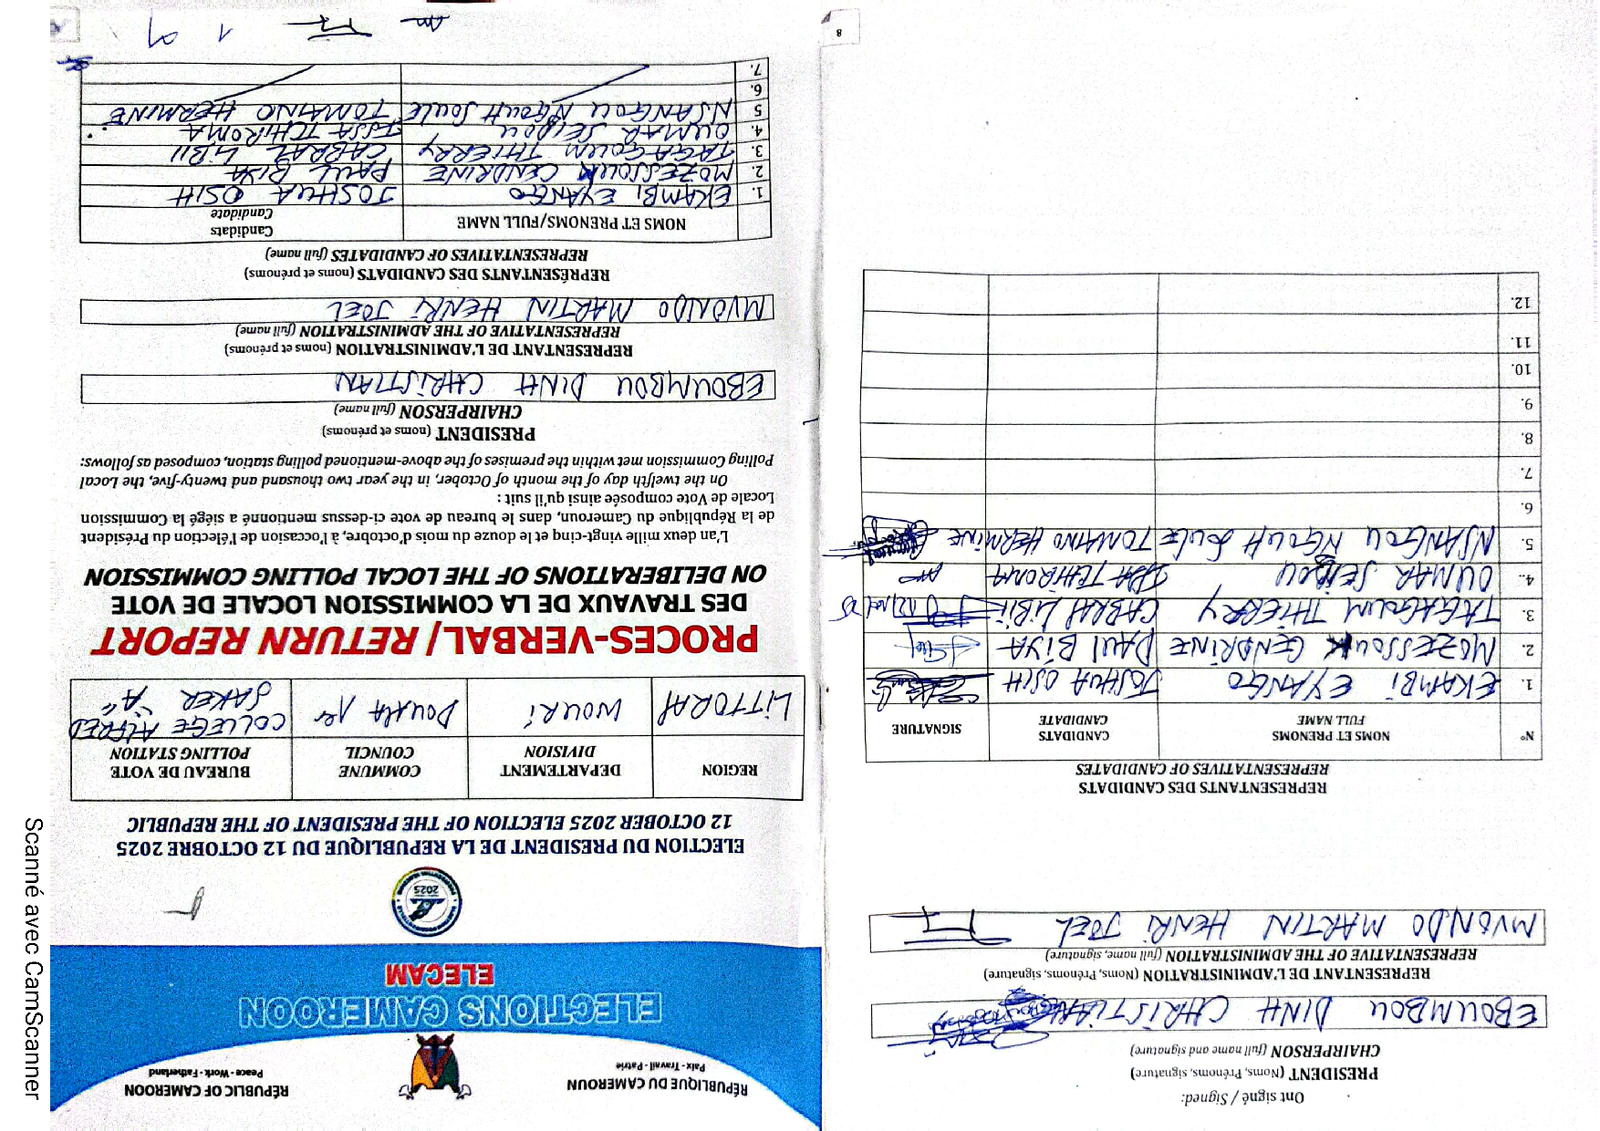 RÉPUBLIQUE DU CAMEROUN
Paix - Travail - Patrie
RÉPUBLIC OF CAMEROON
Peace - Work - Fatherland
ELECTIONS CAMEROON
ELECAM
2025
ELECTION DU PRESIDENT DE LA REPUBLIQUE DU 12 OCTOBRE 2025
12 OCTOBER 2025 ELECTION OF THE PRESIDENT OF THE REPUBLIC
REGION
DEPARTEMENT
DIVISION
COMMUNE
COUNCIL
BUREAU DE VOTE
POLLING STATION
LITTORAL
WOURI
DOUALA 1er
COLLEGE ALFRED
SAKER "A"
PROCES-VERBAL/ RETURN REPORT
DES TRAVAUX DE LA COMMISSION LOCALE DE VOTE
ON DELIBERATIONS OF THE LOCAL POLLING COMMISSION
L'an deux mille vingt-cinq et le douze du mois d'octobre, à l'occasion de l'élection du Président
de la République du Cameroun, dans le bureau de vote ci-dessus mentionné a siégé la Commission
Locale de Vote composée ainsi qu'il suit :
On the twelfth day of the month of October, in the year two thousand and twenty-five, the Local
Polling Commission met within the premises of the above-mentioned polling station, composed as follows:
PRESIDENT (noms et prénoms)
CHAIRPERSON (full name)
EBOUMBOU DINH CHRISTIAN
REPRESENTANT DE L'ADMINISTRATION (noms et prénoms)
REPRESENTATIVE OF THE ADMINISTRATION (full name)
MVONDO MARTIN HENRI JOEL
REPRÉSENTANTS DES CANDIDATS (noms et prénoms)
REPRESENTATIVES OF CANDIDATES (full name)
NOMS ET PRENOMS/FULL NAME
Candidats
Candidate
1. EKAMBI EYANGO JOSHUA OSIH
2. MOZESSOUK CENDRINE PAUL BIYA
3. TAGAGOUM THIERRY CABRAL LIBII
4. OUMAR SEIDOU ISSA TCHIROMA
5 NSANGOU NGOUH SOULE TOMAINO HERMINE
6.
7.
8
Ont signé / Signed:
PRESIDENT (Noms, Prénoms, signature)
CHAIRPERSON (full name and signature)
EBOUMBOU DINH CHRISTIAN
REPRESENTANT DE L'ADMINISTRATION (Noms, Prénoms, signature)
REPRESENTATIVE OF THE ADMINISTRATION (full name, signature)
MVONDO MARTIN HENRI JOEL
REPRESENTANTS DES CANDIDATS
REPRESENTATIVES OF CANDIDATES
N°
NOMS ET PRENOMS
FULL NAME
CANDIDATS
CANDIDATE
SIGNATURE
1. EKAMBI EYANGO JOSHUA OSIH
2. MOZESSOUK CENDRINE PAUL BIYA
3. TAGAGOUM THIERRY CABRAL LIBII
4. OUMAR SEIDOU ISSA TCHIROMA
5. NSANGOU NGOUH SOULE TOMAINO HERMINE
6.
7.
8.
9.
10.
11.
12.
Scanné avec CamScanner